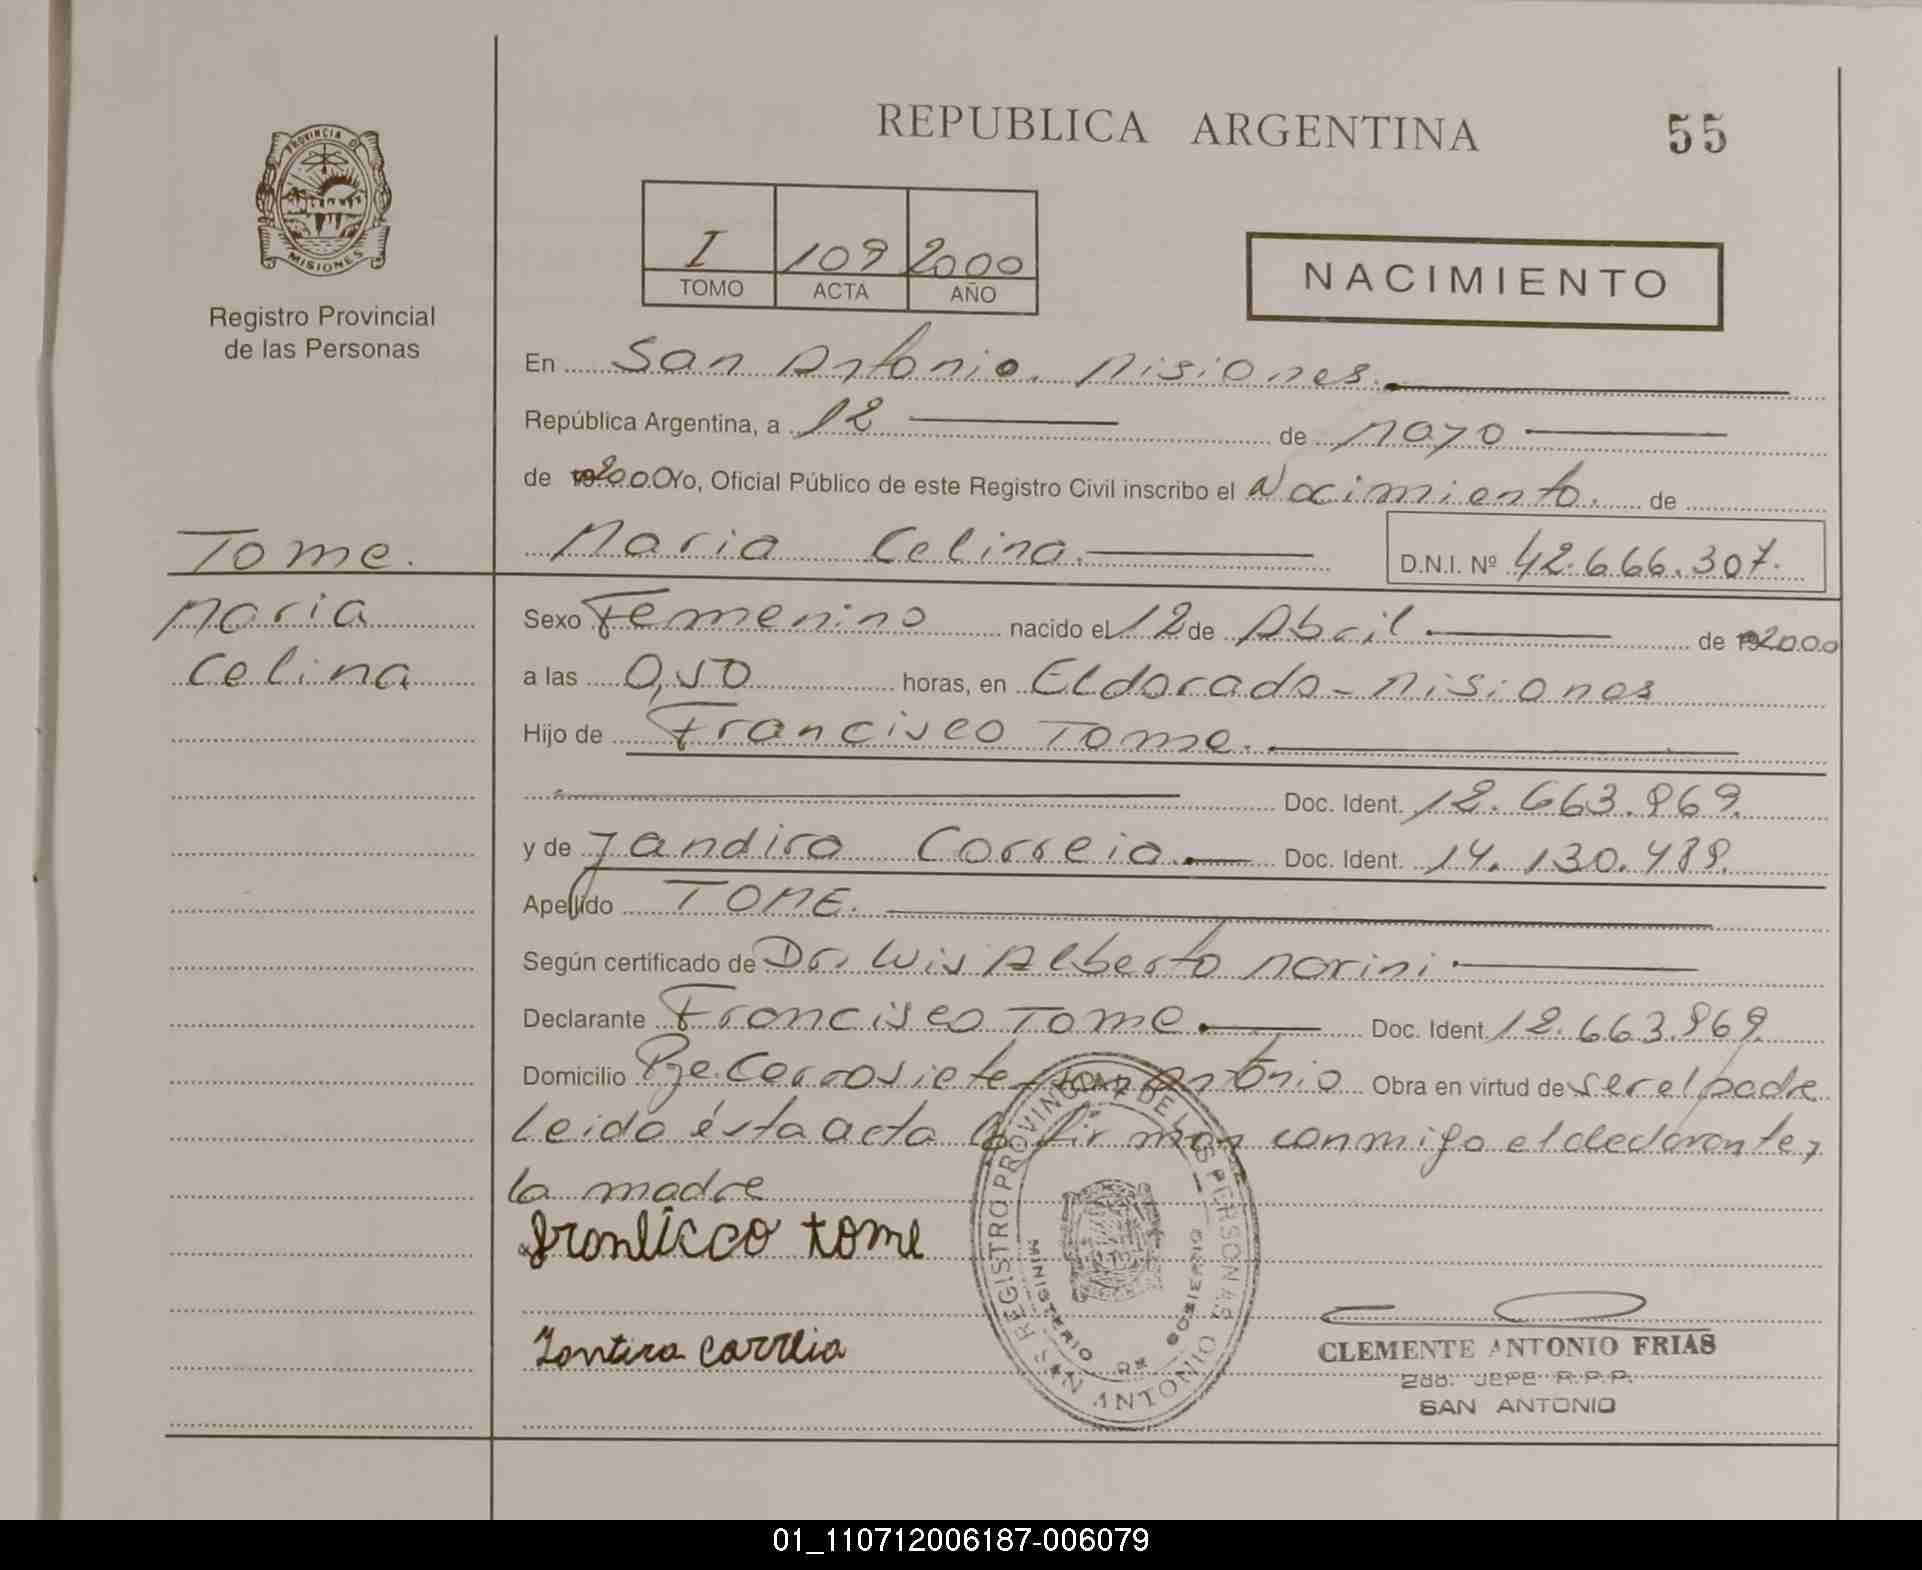 REPUBLICA ARGENTINA 55
PROVINCIA DE
MISIONES
Registro Provincial
de las Personas
I 109 2000
TOMO ACTA AÑO
NACIMIENTO
En San Antonio. Misiones.
República Argentina, a 12 de Mayo
de 2000 Yo, Oficial Público de este Registro Civil inscribo el Nacimiento. de
Tome. Maria Celina. D.N.I. Nº 42.666.307.
Maria
Celina
Sexo Femenino nacido el 12 de Abril de 2000
a las 0,50 horas, en Eldorado - Misiones
Hijo de Francisco Tome.
Doc. Ident. 12.663.969.
y de Jandira Correia. Doc. Ident. 14.130.489.
Apellido TOME.
Según certificado de Dr. Luis Alberto Marini
Declarante Francisco Tome Doc. Ident. 12.663.969.
Domicilio Pje. Cerro Siete - San Antonio Obra en virtud de ser el padre
Leida ésta acta la firman conmigo el declarante y
la madre
franlicco tome
Iantira correia
REGISTRO PROVINCIAL DE LAS PERSONAS
MINISTERIO DE GOBIERNO
SAN ANTONIO
CLEMENTE ANTONIO FRIAS
2do. JEFE R.P.P.
SAN ANTONIO
01_110712006187-006079